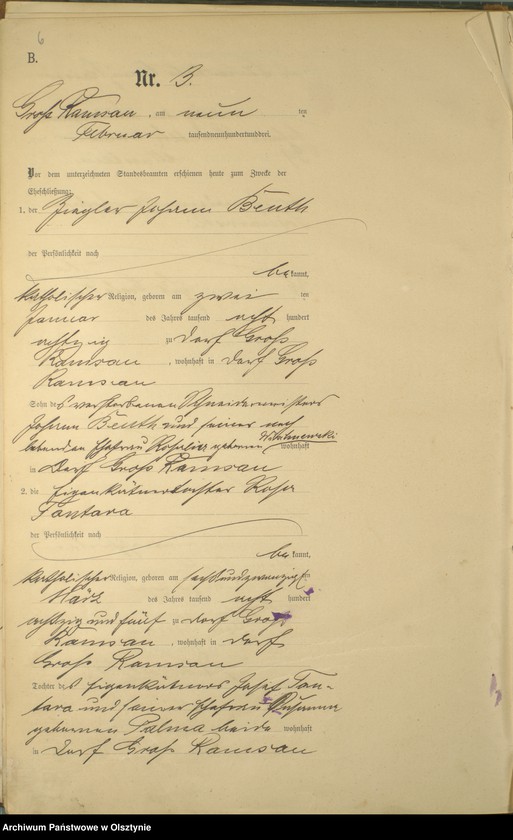 6
B.
Nr. 3.
Groß Ramsau, am neun ten
Februar tausendneunhundertunddrei.
Vor dem unterzeichneten Standesbeamten erschienen heute zum Zwecke der
Eheschließung:
1. der Ziegler Johann Beuth
der Persönlichkeit nach
be kannt,
katholischer Religion, geboren am zwei ten
Januar des Jahres tausend acht hundert
achtzig zu Dorf Groß
Ramsau, wohnhaft in Dorf Groß
Ramsau
Sohn des verstorbenen Schneidermeisters
Johann Beuth und seiner noch
lebenden Ehefrau Rosalie geborenen wohnhaft
in Dorf Groß Ramsau
2. die Eigenkätnertochter Rosa
Tantara
der Persönlichkeit nach
be kannt,
katholischer Religion, geboren am sechsundzwanzigsten
März des Jahres tausend acht hundert
achtzig und fünf zu Dorf Groß
Ramsau, wohnhaft in Dorf
Groß Ramsau
Tochter des Eigenkätners Josef Tan-
tara und seiner Ehefrau Susanna
geborenen Palmea beide wohnhaft
in Dorf Groß Ramsau
Archiwum Państwowe w Olsztynie